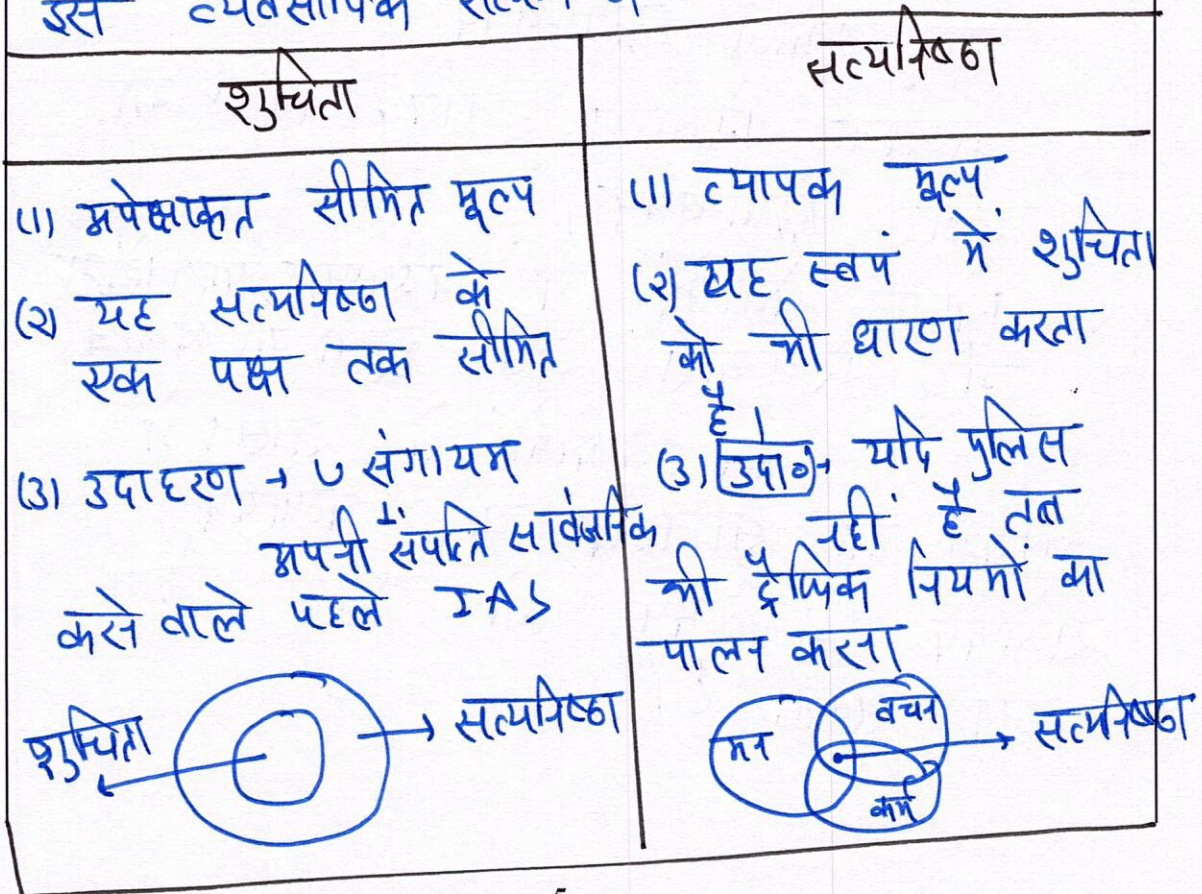 इस व्यवसायिक
शुचिता
सत्यनिष्ठा
(1) अपेक्षाकृत सीमित मूल्य
(2) यह सत्यनिष्ठा के
एक पक्ष तक सीमित
(3) उदाहरण → U संगायम
अपनी संपत्ति सार्वजनिक
करने वाले पहले IAS
शुचिता
सत्यनिष्ठा
(1) व्यापक मूल्य
(2) यह स्वयं में शुचिता
को भी धारण करता
है।
(3) उदा०→ यदि पुलिस
नहीं है तब
भी ट्रैफिक नियमों का
पालन करना
मन
वचन
कर्म
सत्यनिष्ठा